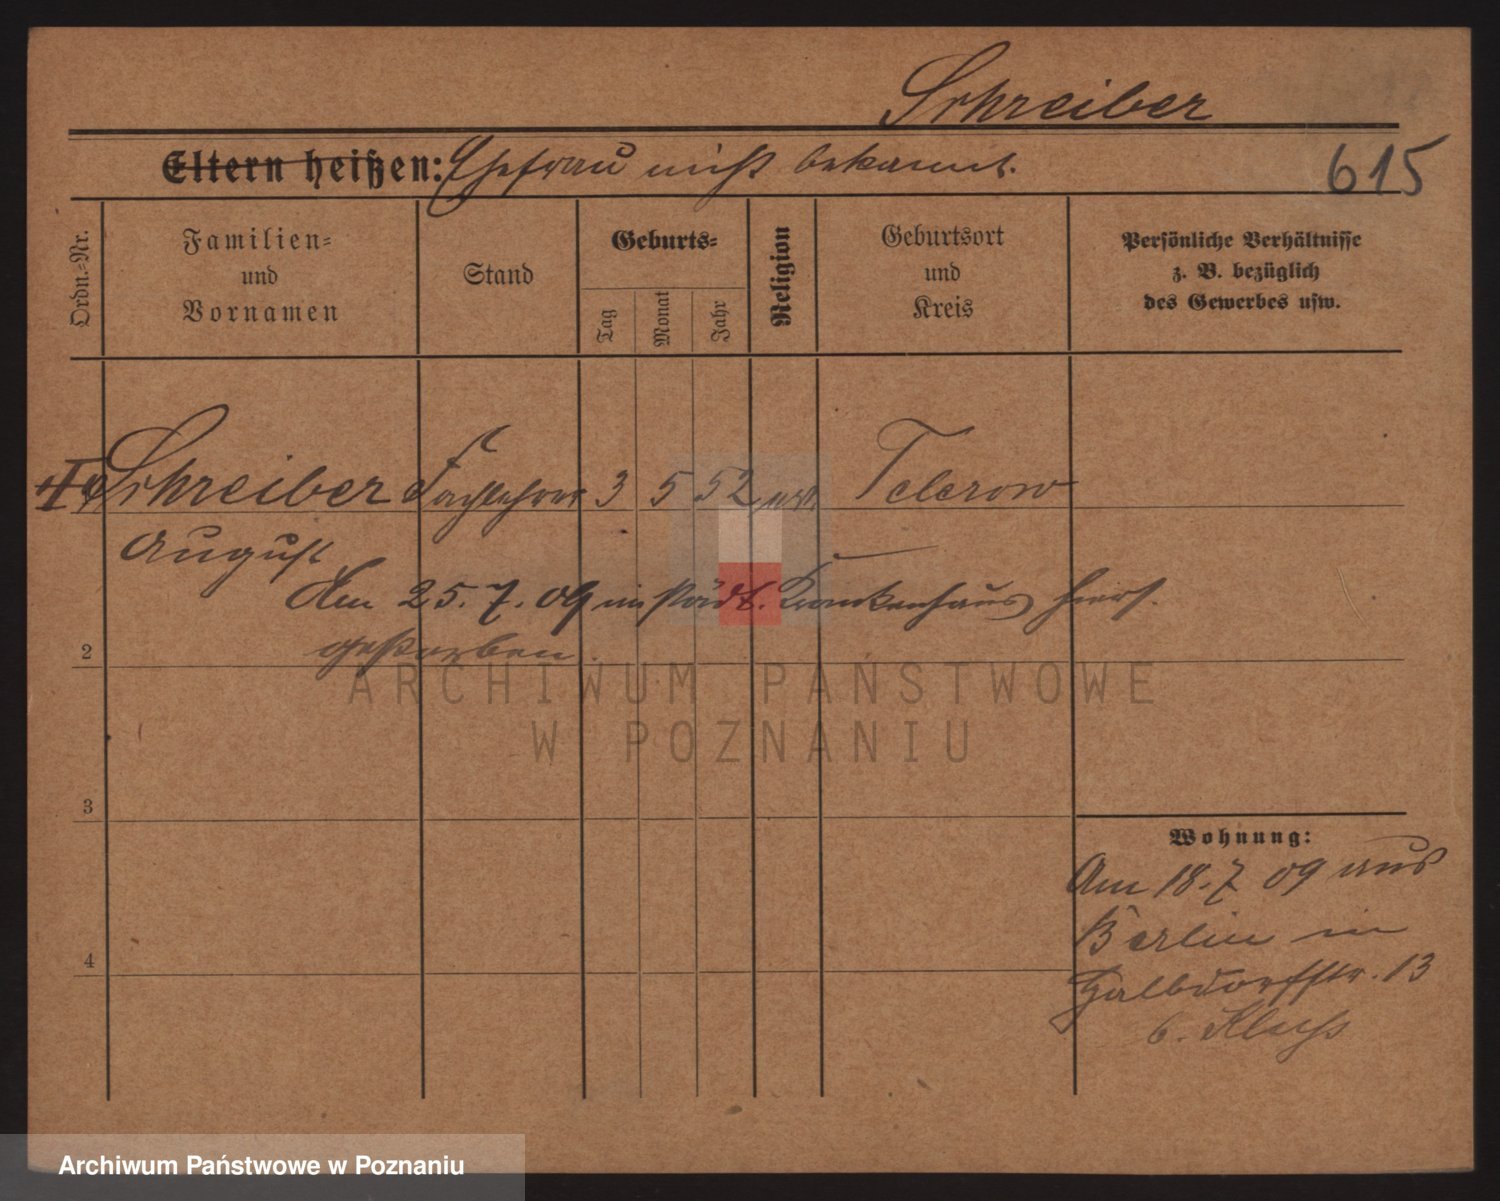 Schreiber
Eltern heißen: Ehefrau nicht bekannt.
615
Ordn.=Nr.
Familien=
und
Vornamen
Stand
Geburts=
Tag
Monat
Jahr
Religion
Geburtsort
und
Kreis
Persönliche Verhältnisse
z. B. bezüglich
des Gewerbes usw.
Schreiber Fachlehrer 3 5 52 Teterow
August
Am 25.7.09 im städt. Krankenhaus hiers.
gestorben.
2
ARCHIWUM PAŃSTWOWE
W POZNANIU
3
Wohnung:
Am 18.7 09 aus
Berlin in
4
Halbdorfstr. 13
b.
Archiwum Państwowe w Poznaniu